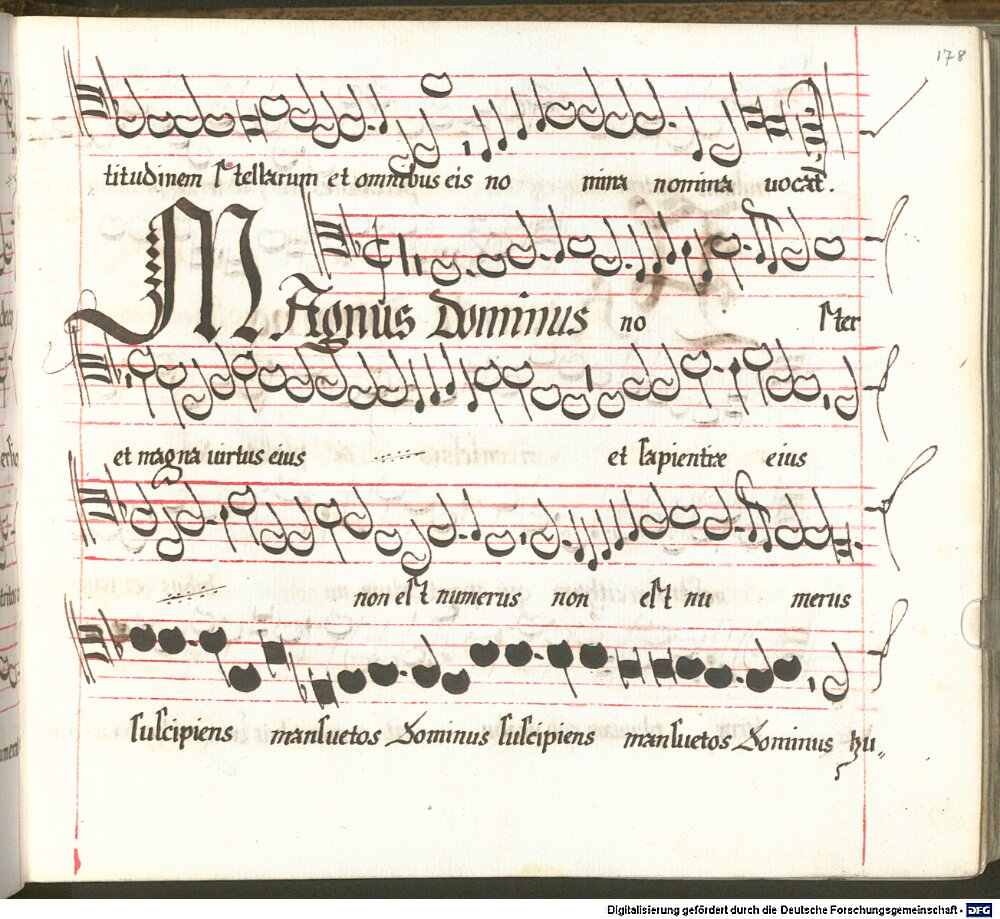 178
titudinem stellarum et omnibus eis no mina nomina uocat.
MAgnus Dominus no ster
et magna uirtus eius et sapientiæ eius
non est numerus non est nu merus
suscipiens mansuetos Dominus suscipiens mansuetos Dominus hu„
Digitalisierung gefördert durch die Deutsche Forschungsgemeinschaft - DFG